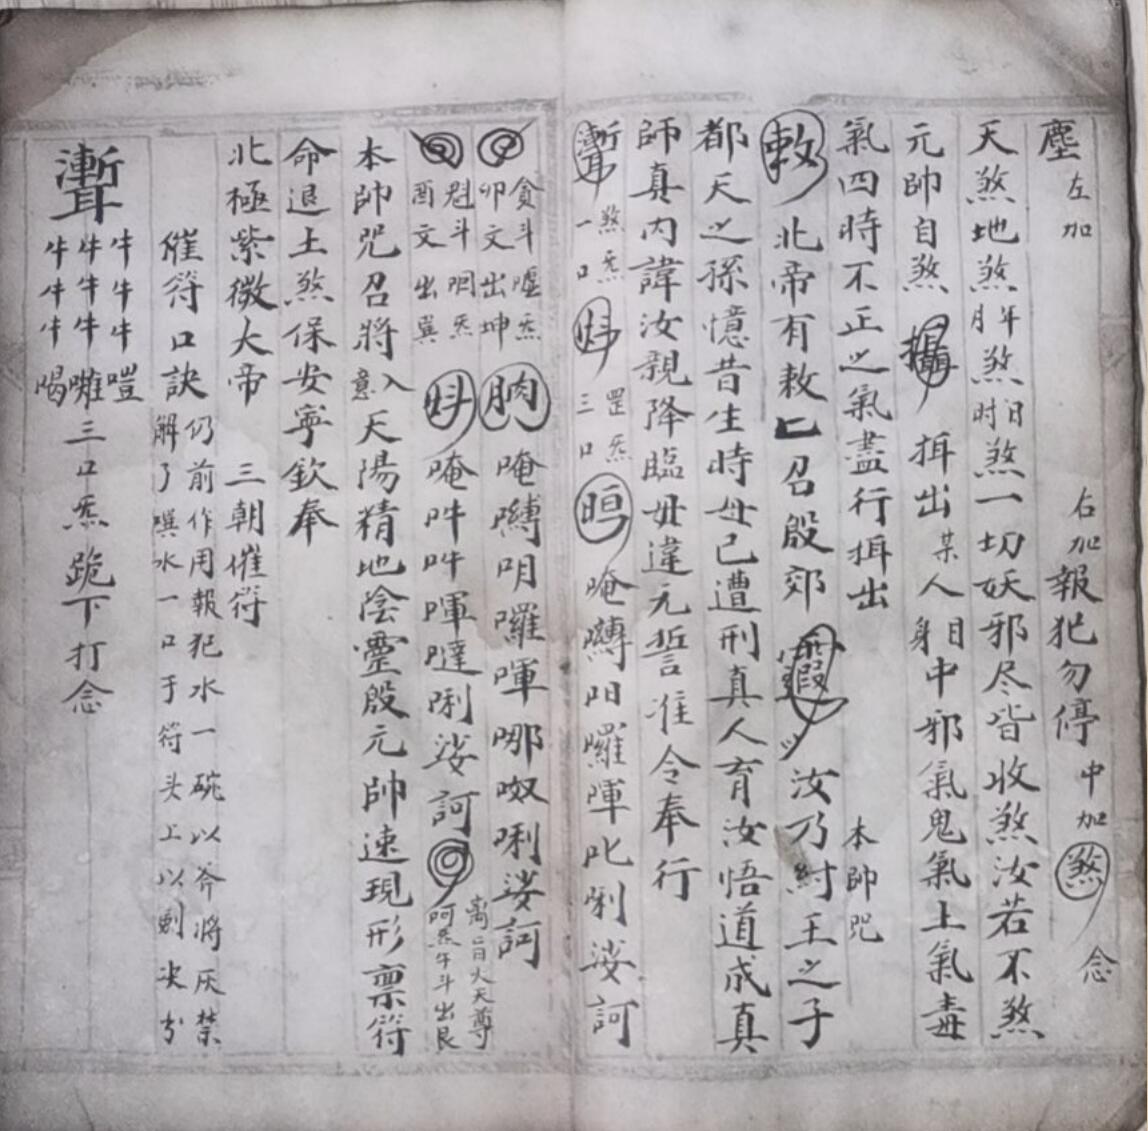 塵 左加 右加 報犯勿停 中加 煞 念
天煞地煞年月煞日时煞一切妖邪尽皆收煞汝若不煞
元帥自煞 攝 挕出某人身目中邪氣鬼氣土氣毒
氣四時不正之氣盡行挕出 本帥咒
敕 北帝有敕匕召殷郊 汝乃紂王之子
都天之孫憶昔生時母已遭刑真人育汝悟道成真
師真内諱汝親降臨毋違元誓准令奉行
煞炁一口 罡炁三口 唵嚩吅囉暉叱唎娑訶
貪斗嚂炁卯文出坤 唵嚩明囉暉哪呶唎娑訶
魁斗呬炁酉文出巽 唵吽吽暉噠唎娑訶 离旨火天尊呵炁午斗出艮
本帥咒召將入意天陽精地陰靈殷元帥速現形禀符
命退土煞保安寧欽奉
北極紫微大帝 三朝催符
催符口訣 仍前作用報犯水一碗以斧将灰禁
解了噀水一口于符头上以劍决分
牛牛牛噔
牛牛牛囉三口炁跪下打念
牛牛牛喝